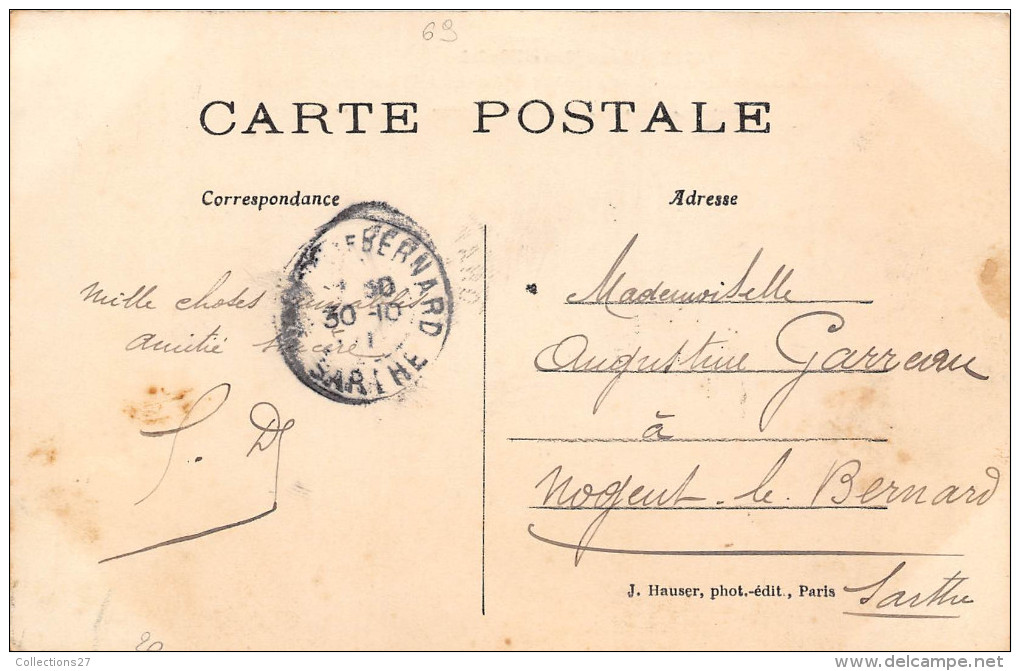 69
CARTE POSTALE
Correspondance
Adresse
BERNARD
30
30-10
1
SARTHE
mille choses aimables
amitié sincère
Mademoiselle
Augustine Garreau
à
Nogent-le-Bernard
Sarthe
J. Hauser, phot.-édit., Paris
20
Collections27
www.delcampe.net